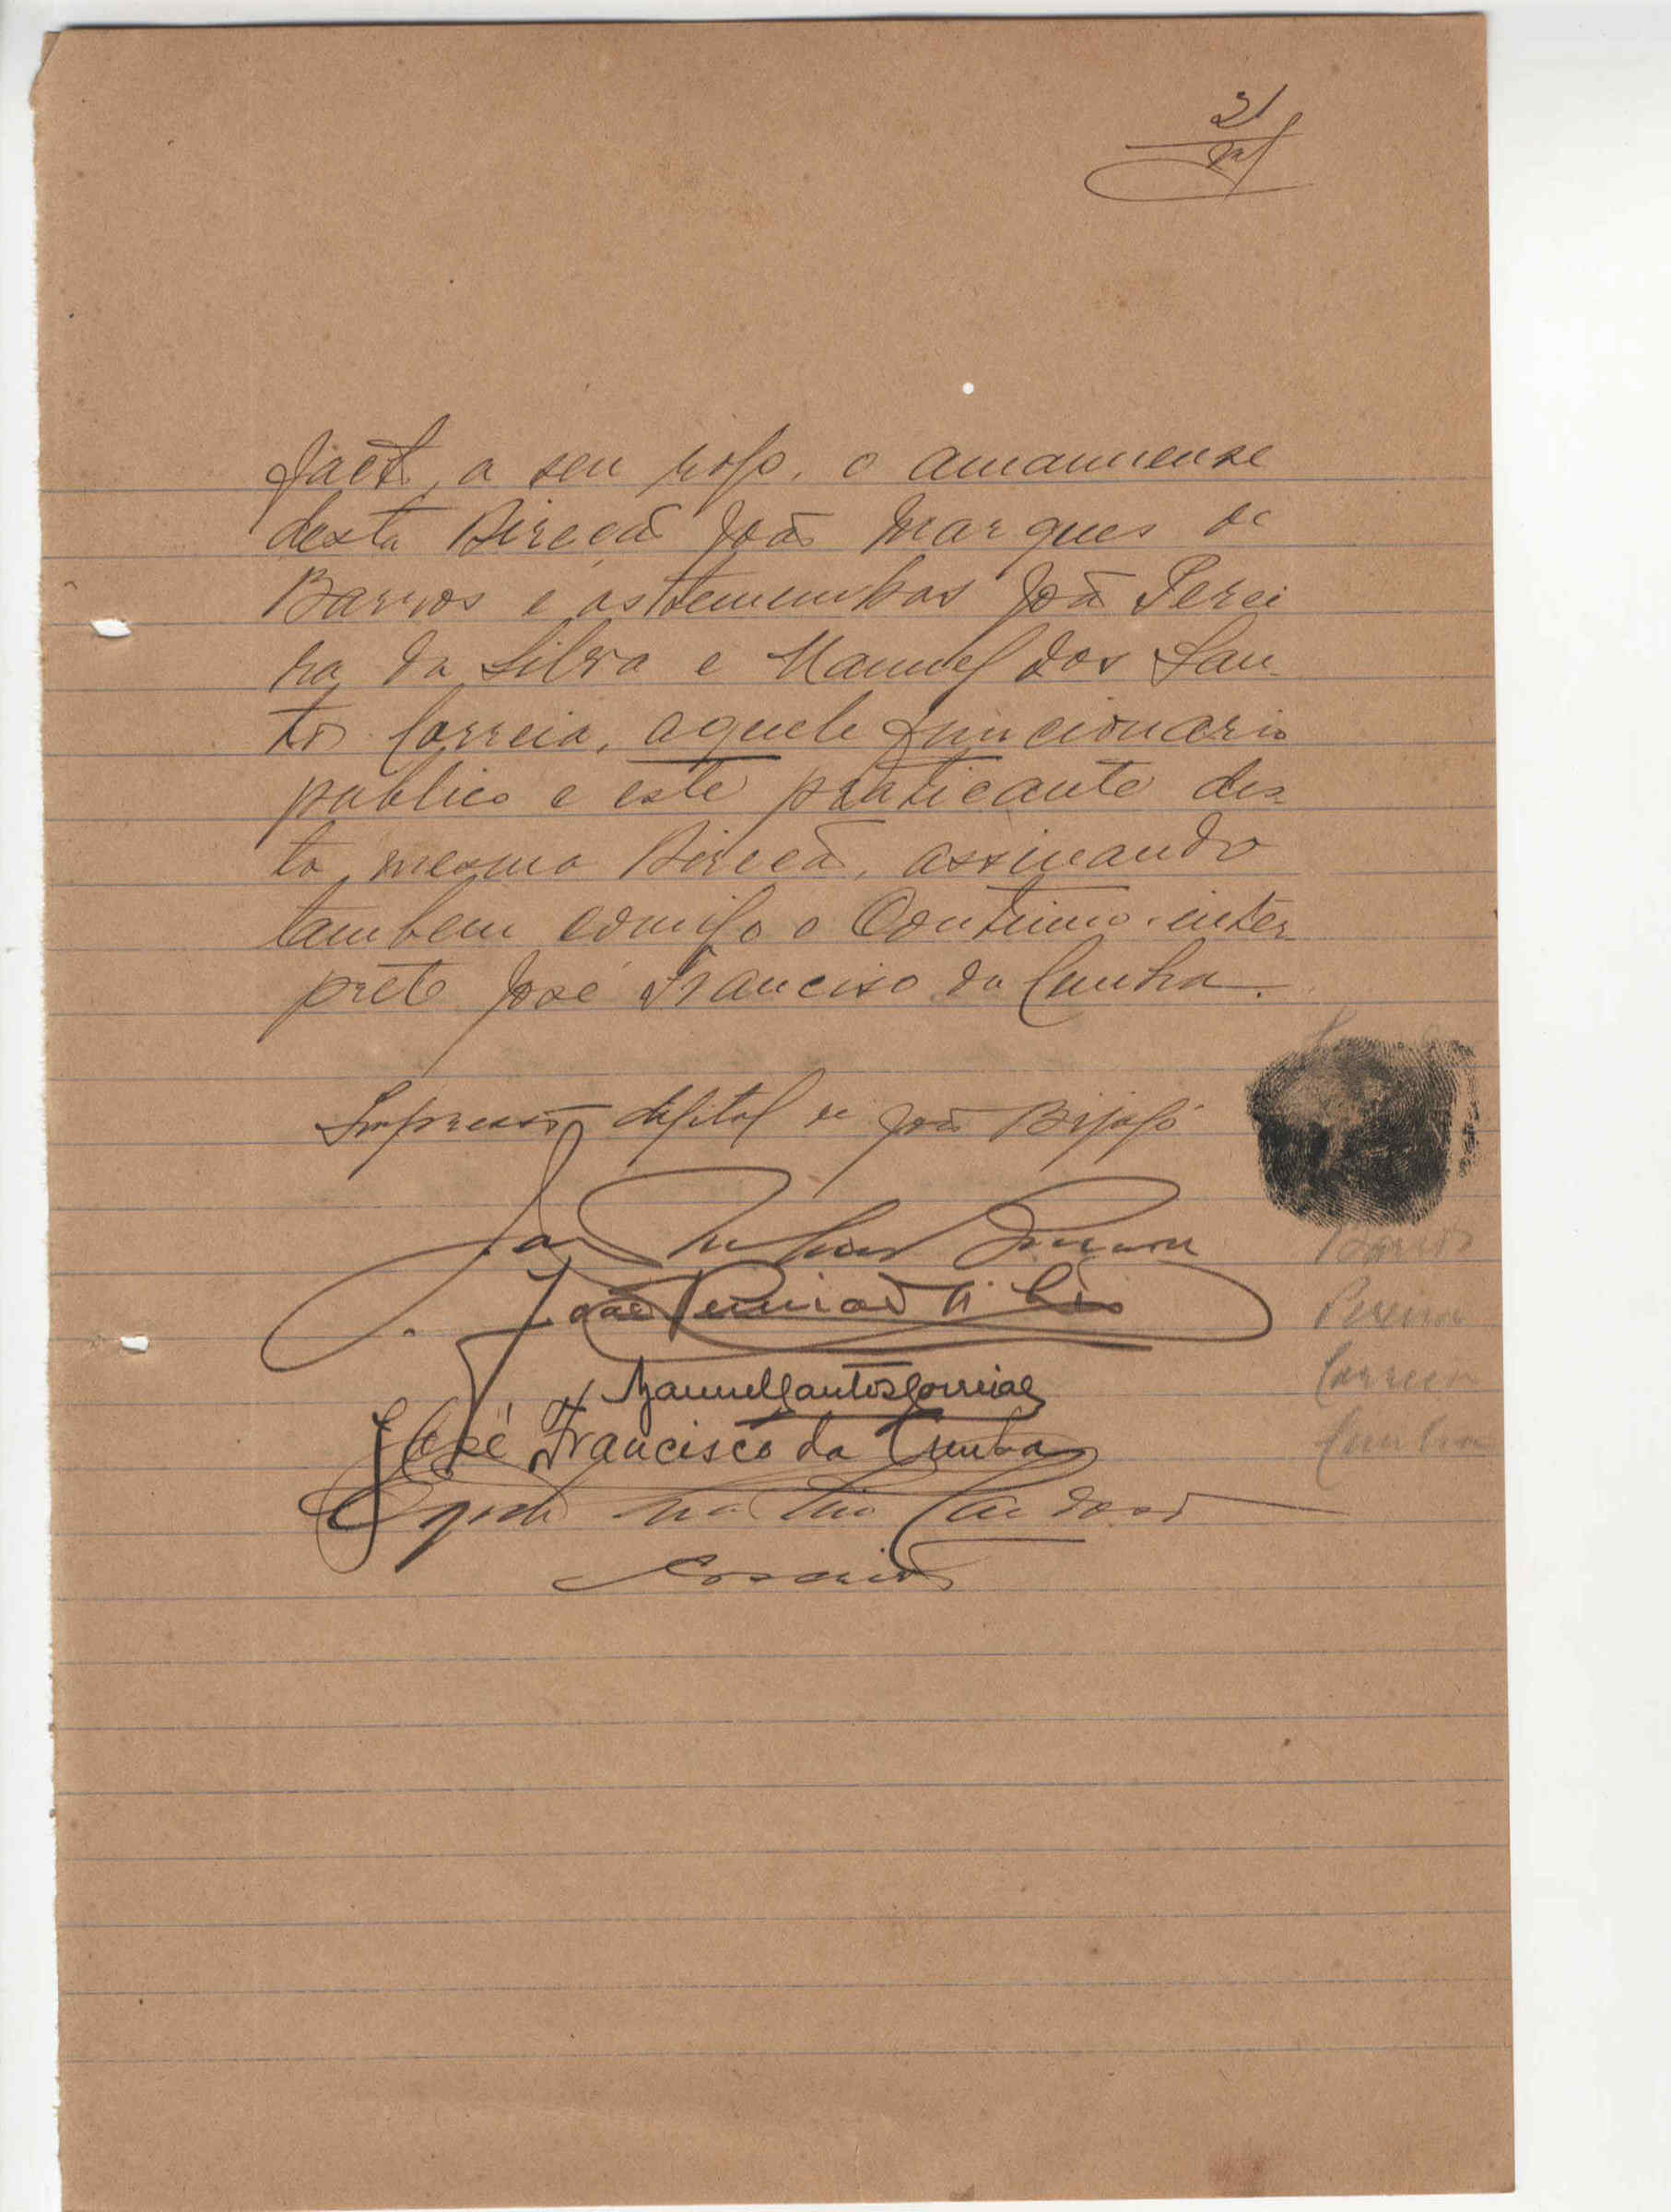 21
fact, a seu rogo, o amanuense
desta Direcção João Marques de
Barros e as temunhas João Perei
ra da Silva e Manuel dos San-
tos Correia, aquele funcionario
publico e este praticante des-
ta mesma Direcção, assinando
tambem comigo o Continuo-inter
prete José Francisco da Cunha.
Impressão digital de João Bijagó
João
Barros
João Pereira
Pereira
Manuel Santos Correia
Correia
José Francisco da Cunha
Cunha
Cardoso